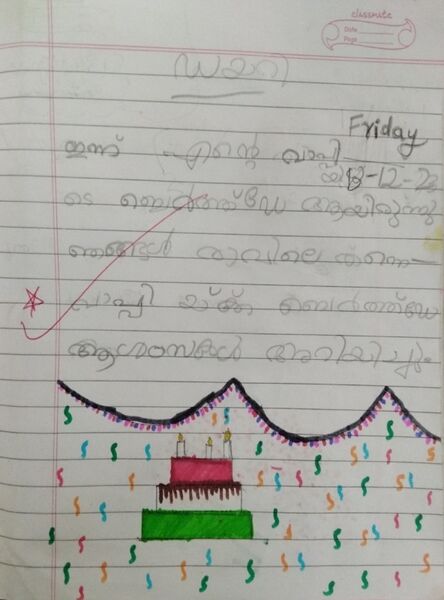 classmate
Date
Page
ഡയറി
Friday
ഇന്ന് എന്റെ വാപ്പി
13-12-22
ടെ ബെർത്ത്ഡേ ആയിരുന്നു
ഞങ്ങൾ രാവിലെ തന്നെ
വാപ്പി യ്ക്ക് ബെർത്ത്ഡേ
ആശംസകൾ അറിയിച്ചു.